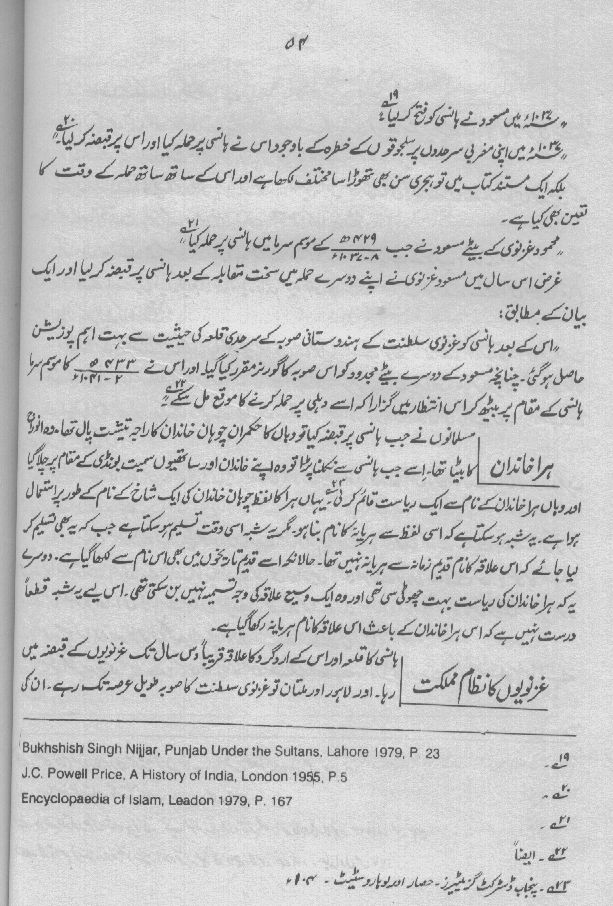 ۵۴
"۱۰۳۷ء میں مسعود نے ہانسی کو فتح کر لیا"۱۹؎
"۱۰۳۷ء میں اپنی مغربی سرحدوں پر سلجوقوں کے خطرہ کے باوجود اس نے ہانسی پر حملہ کیا اور اس پر قبضہ کر لیا۔"۲۰؎
بلکہ ایک مستند کتاب میں تو ہجری سن بھی تھوڑا سا مختلف لکھا ہے اور اس کے ساتھ ساتھ حملہ کے وقت کا
تعین بھی کیا ہے۔
"محمود غزنوی کے بیٹے مسعود نے جب ۴۲۹ھ / ۸-۱۰۳۷ء کے موسم سرما میں ہانسی پر حملہ کیا"۲۱؎
غرض اس سال میں مسعود غزنوی نے اپنے دوسرے حملہ میں سخت مقابلہ کے بعد ہانسی پر قبضہ کر لیا اور ایک
بیان کے مطابق:
"اس کے بعد ہانسی کو غزنوی سلطنت کے ہندوستانی صوبہ کے سرحدی قلعہ کی حیثیت سے بہت اہم پوزیشن
حاصل ہو گئی۔ چنانچہ مسعود کے دوسرے بیٹے مجدود کو اس صوبہ کا گورنر مقرر کیا گیا۔ اور اس نے ۴۳۳ھ / ۲-۱۰۴۱ء کا موسم سرما
ہانسی کے مقام پر بیٹھ کر اس انتظار میں گزارا کہ اسے دہلی پر حملہ کرنے کا موقع مل سکے"۲۲؎
مسلمانوں نے جب ہانسی پر قبضہ کیا تو وہاں کا حکمران چوہان خاندان کا راجہ تیشت پال تھا۔ وہ انوراج
ہرا خاندان
کا بیٹا تھا۔ اسے جب ہانسی سے نکلنا پڑا تو وہ اپنے خاندان اور ساتھیوں سمیت بونڈی کے مقام پر چلا گیا
اور وہاں ہرا خاندان کے نام سے ایک ریاست قائم کر لی۔۲۳؎ یہاں ہرا کا لفظ چوہان خاندان کی ایک شاخ کے نام کے طور پر استعمال
ہوا ہے۔ یہ شبہ ہو سکتا ہے کہ اسی لفظ سے ہریانہ کا نام بنا ہو۔ مگر یہ شبہ اسی وقت تسلیم ہو سکتا ہے جب کہ یہ بھی تسلیم کر
لیا جائے کہ اس علاقہ کا نام قدیم زمانہ سے ہریانہ نہیں تھا۔ حالانکہ اسے قدیم تاریخوں میں بھی اس نام سے لکھا گیا ہے۔ دوسرے
یہ کہ ہرا خاندان کی ریاست بہت چھوٹی سی تھی اور وہ ایک وسیع علاقہ کی وجہ تسمیہ نہیں بن سکتی تھی۔ اس لیے یہ شبہ قطعاً
درست نہیں ہے کہ اس ہرا خاندان کے باعث اس علاقہ کا نام ہریانہ رکھا گیا ہے۔
ہانسی کا قلعہ اور اس کے اردگرد کا علاقہ قریباً دس سال تک غزنویوں کے قبضہ میں
غزنویوں کا نظام مملکت
رہا۔ اور لاہور اور ملتان تو غزنوی سلطنت کا صوبہ طویل عرصہ تک رہے۔ ان کی
۱۹؎۔ Bukhshish Singh Nijjar, Punjab Under the Sultans, Lahore 1979, P. 23
۲۰؎۔ J.C. Powell Price, A History of India, London 1955, P.5
۲۱؎۔ Encyclopaedia of Islam, Leadon 1979, P. 167
۲۲؎۔ ایضاً
۲۳؎۔ پنجاب ڈسٹرکٹ گزیٹیرز۔ حصار اور لوہارو سٹیٹ۔ ۱۹۰۴ء